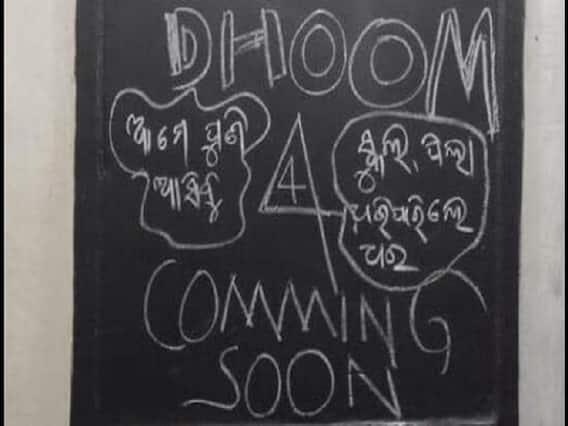 DHOOM
4
4
ଆମେ ପୁଣି
ଆସିବୁ
ସ୍କୁଲ, ପିଲା
ଘର
COMMING
SOON